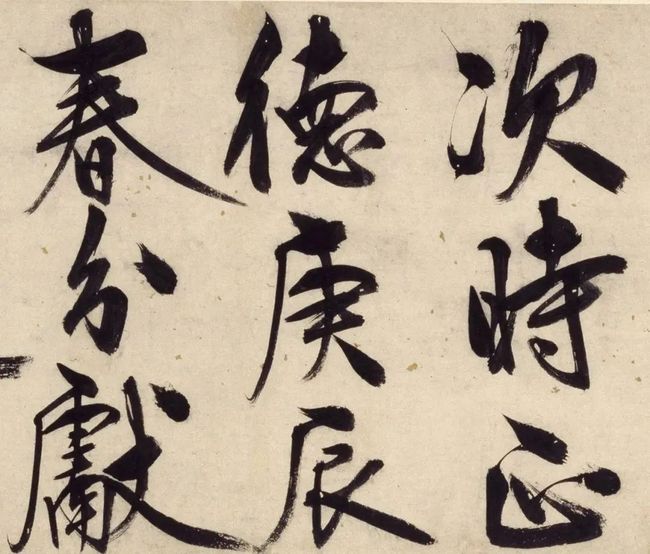 次時正
德庚辰
春分獻